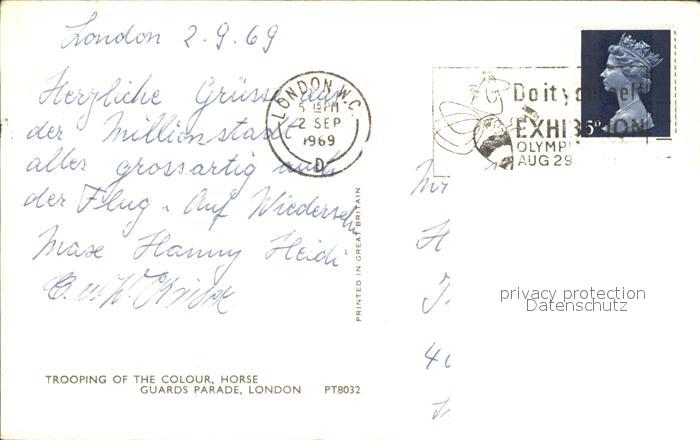 London 2.9.69
Herzliche Grüsse aus
der Millionstadt
alles grossartig auch
der Flug. Auf Wiedersehn
Max Hanny Heidi
LONDON. W.C.
5 15 PM
2 SEP
1969
D
Do it yourself
EXHIBITION
OLYMPI
AUG 29
5D
PRINTED IN GREAT BRITAIN
privacy protection
Datenschutz
TROOPING OF THE COLOUR, HORSE
GUARDS PARADE, LONDON PT8032